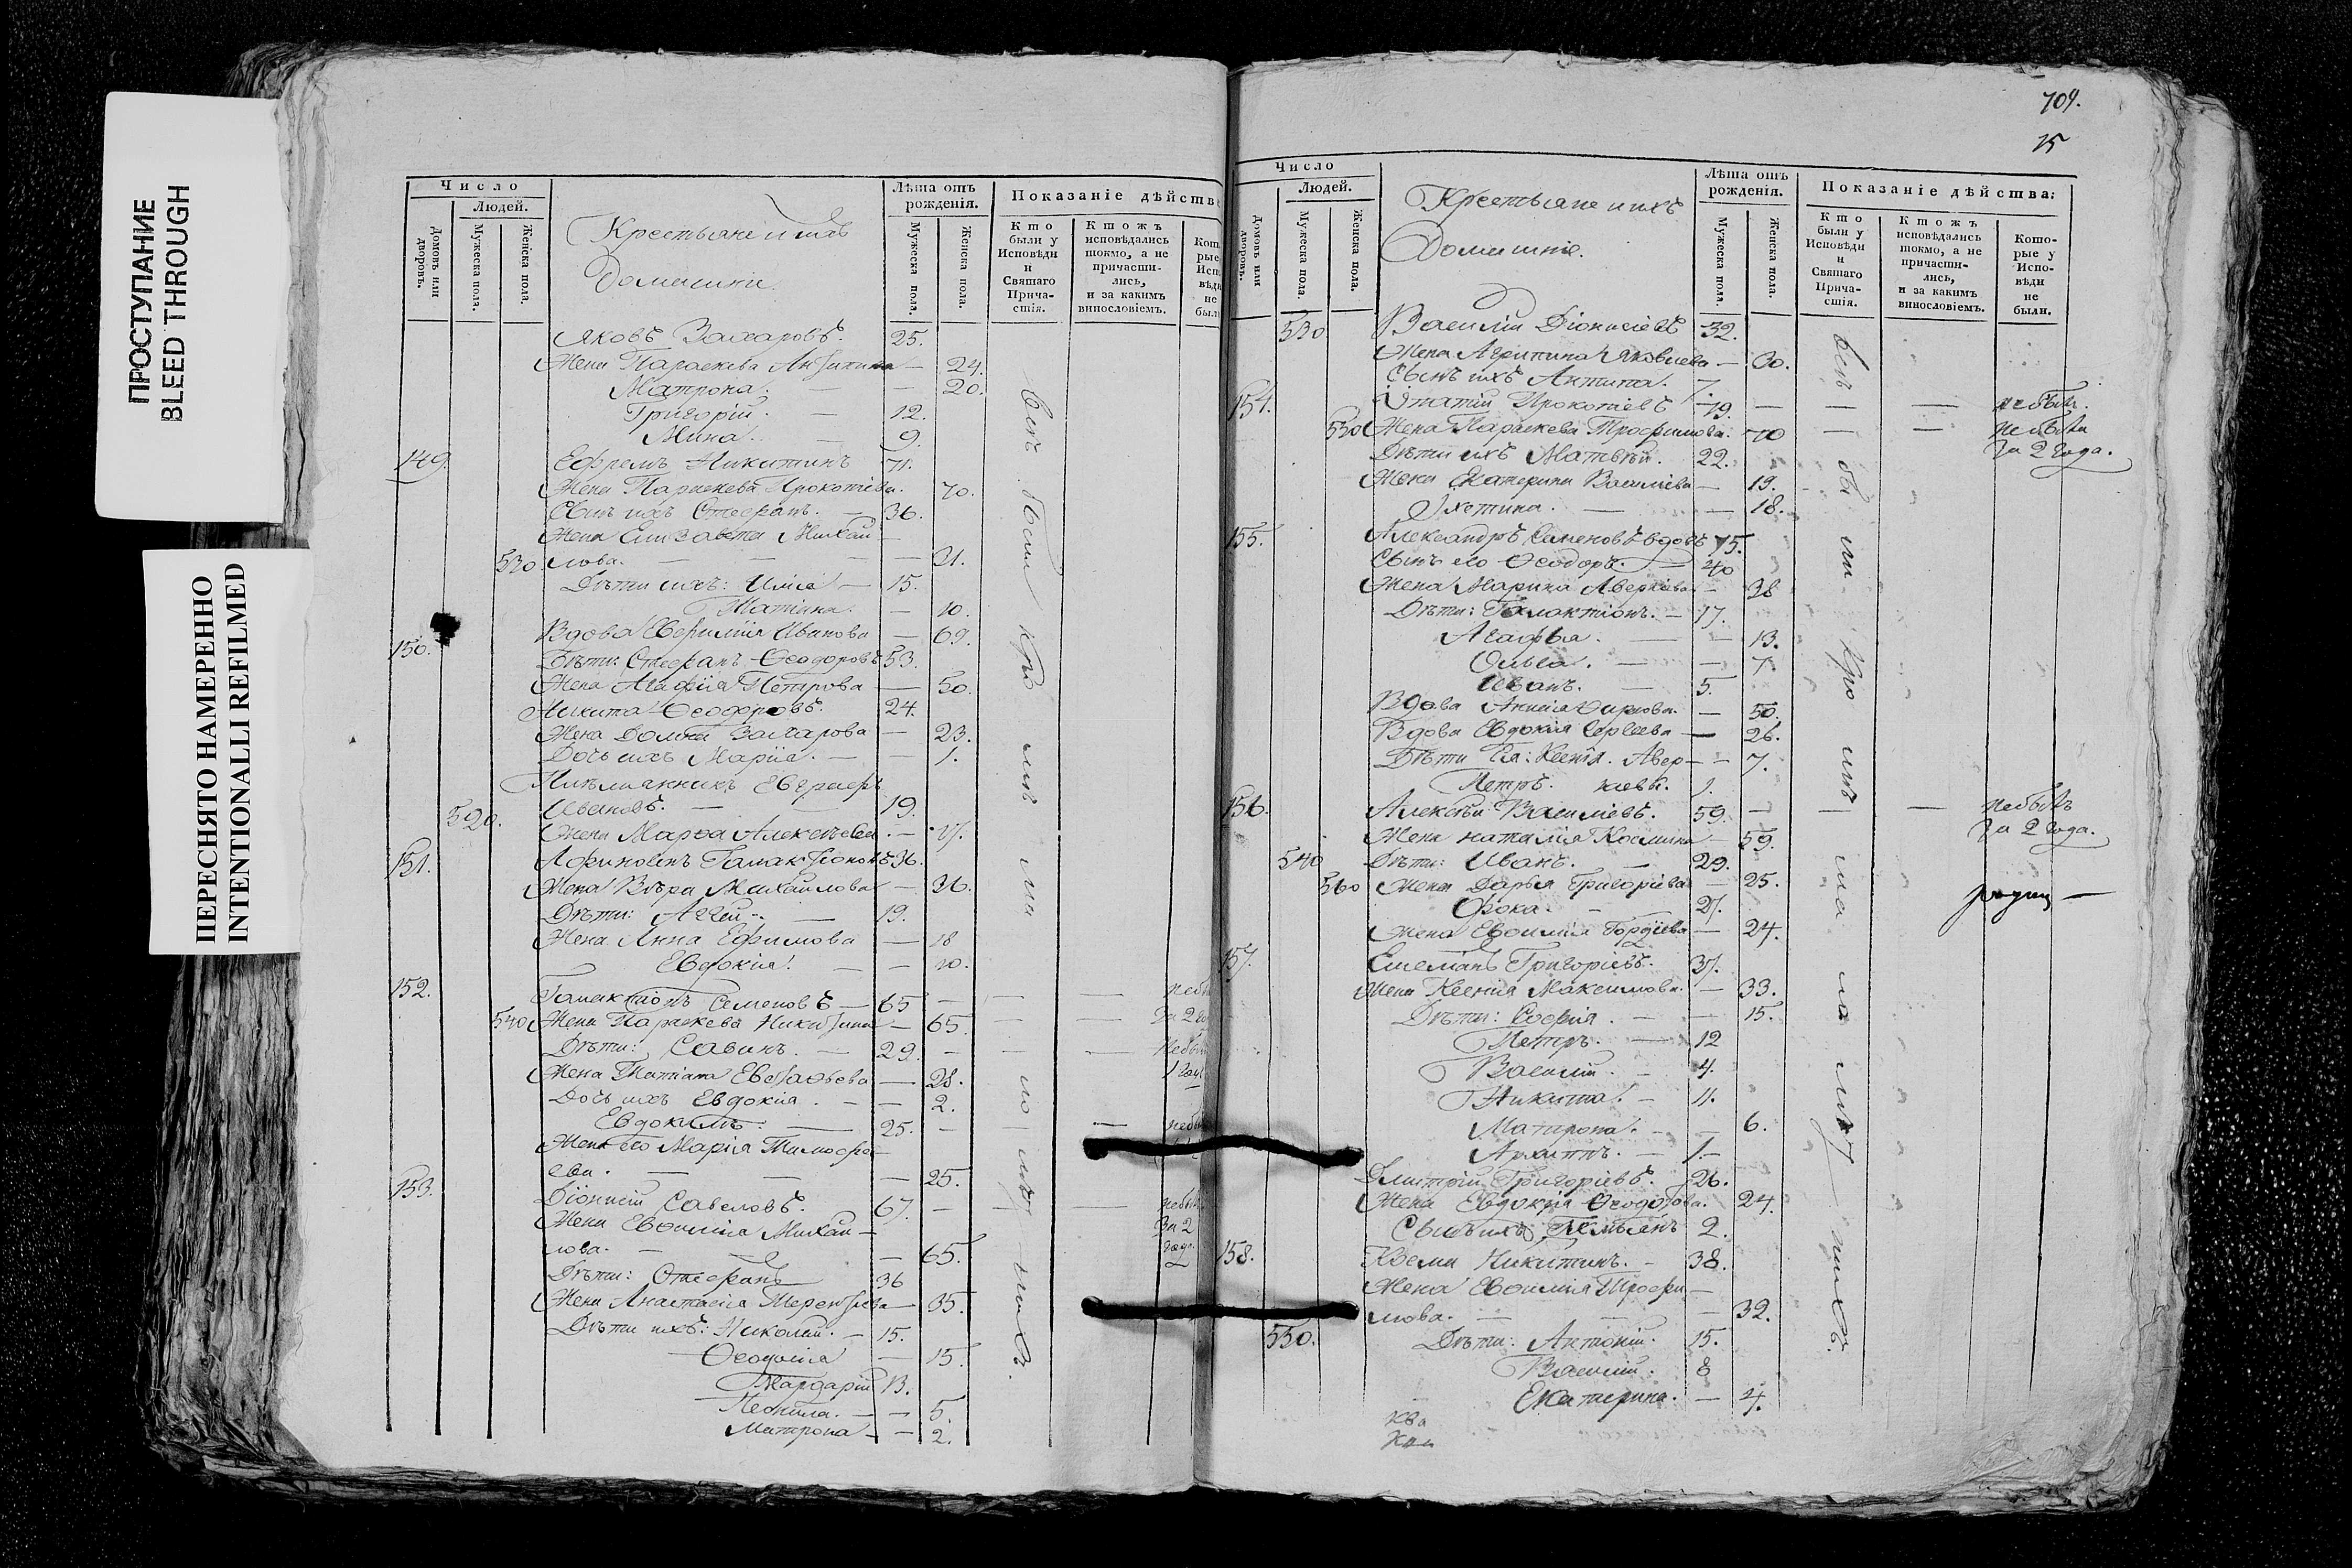 ПРОСТУПАНИЕ
BLEED THROUGH
ПЕРЕСНЯТО НАМЕРЕННО
INTENTIONALLI REFILMED
Число
Людей.
Домовъ или дворовъ.
Мужеска пола.
Женска пола.
Крестьяне и ихъ
Домашнie.
Лѣта отъ рожденiя.
Мужеска пола.
Женска пола.
Показанiе дѣйств
Кто были у Исповѣди и Святаго Прича-стiя.
Ктожъ исповѣдались токмо, а не причасти-лись, и за какимъ винословiемъ.
Яковъ Захаровъ. 25.
Жена Параскева Антипина — 24.
Матрона. — 20.
Григорiй. — 12.
Мина. — 9.
149. Ефремъ Никитинъ 71.
Жена Параскева Прокопiева. 70.
Сынъ ихъ Стефанъ. — 36.
Жена Елизавета Михай-
530 лова. — 31.
Дѣти ихъ: Илiа — 15.
— 10.
150. Вдова Евфимiя Иванова — 69.
Дѣти: Стефанъ Ѳеодоровъ 53.
Жена Агафiя Петрова — 50.
Никита Ѳеодоровъ. 24.
Жена Домна Захарова — 23.
Дочь ихъ Марiя. — 1.
Племянникъ Евграфъ
Ивановъ. — 19.
520. Жена Марѳа Алексѣева. — 17.
151. Галактiоновъ 36.
Жена Вѣра Михайлова — 36.
Дѣти: Аггей — 19.
Жена Анна Ефимова — 18
Евдокiя. — 10.
152. Галактiонъ Семеновъ — 65
540 Жена Параскева Никитина — 65.
Дѣти: Савинъ. — 29.
Жена Татiана Евстафьева — 28.
Дочь ихъ Евдокiя. — 2.
Евдокимъ. — 25.
Жена его Марiя Тимофе-
ева. — 25.
153. Дiонисiй Савеловъ. 67.
Жена Евѳимiя Михай-
лова. — 65.
Дѣти: Стефанъ 36
Жена Анастасiя Терентiева — 35.
Дѣти ихъ: Николай. — 15.
Ѳеодосiя — 15.
Мардарiй 13.
Неонила. — 5.
Матрона — 2.
709.
15
Число
Людей.
Домовъ или дворовъ.
Мужеска пола.
Женска пола.
Крестьяне и ихъ
Домашнie.
Лѣта отъ рожденiя.
Мужеска пола.
Женска пола.
Показанiе дѣйства;
Кто были у Исповѣди и Святаго Прича-стiя.
Ктожъ исповѣдались токмо, а не причасти-лись, и за какимъ винословiемъ.
Кото-рые у Испо-вѣди не были.
530 Василiй Дiонисiевъ 32.
Жена Агрипина Яковлева — 30.
Сынъ ихъ Антипа. 7.
154. Прокопiевъ 79. —
550 Жена Параскева Трофимова. 70 —
за 2 года.
Дѣти ихъ Матвѣй. 22.
Жена Екатерина Василiева — 19.
— 18.
155. Александръ Семеновъ вдовъ 75.
Сынъ его Ѳеодоръ. 40
Жена Марина Аверкiева — 38
Дѣти: Галактiонъ. — 17.
Агафья. — 13.
Ольга. — 7.
Иванъ. — 5.
Вдова — 50.
Вдова Евдокiя Сергеева — 26.
Дѣти Ея: Ксенiя. Авер- — 7.
Петръ. кiевы. 1.
156. Алексѣй Василiевъ. 59. — небылъ
за 2 года.
Жена Наталiя Косьмина — 59.
540 Дѣти: Иванъ. — 29.
560 Жена Дарья Григорiева — 25.
Фока. — 27.
Жена Евѳимiя Гордiева — 24.
157. Григорiевъ. 37.
Жена Ксенiя Максимова. — 33.
Дѣти: Софiя. — 15.
Петръ. — 12
Василiй. — 4.
Никита. — 11.
Матрона. — 6.
Архиппъ. — 1.
Дмитрiй Григорiевъ. 26.
Жена Евдокiя Ѳеодотова. 24.
Сынъ ихъ 2.
158. Косма Никитинъ. — 38.
Жена Евѳимiя Трофи-
мова. — 32.
550. Дѣти: Антонiй. 15.
Василiй. 8
Екатерина. — 4.